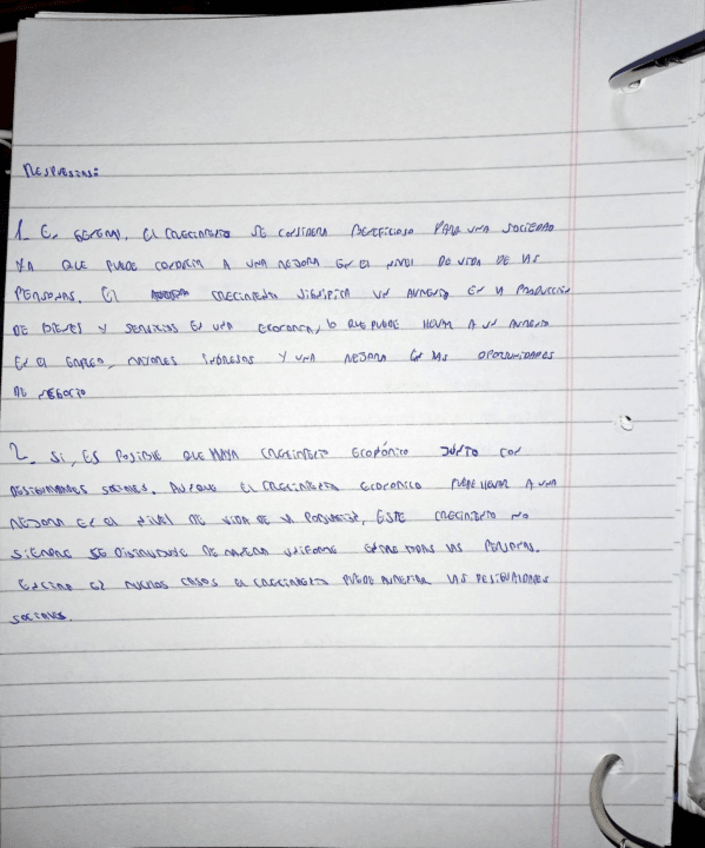 Respuestas:
1. En general, el crecimiento se considera beneficioso para una sociedad
ya que puede conducir a una mejora en el nivel de vida de las
personas. El crecimiento significa un aumento en la producción
de bienes y servicios en una economía, lo que puede llevar a un aumento
en el empleo, mayores ingresos y una mejora en las oportunidades
de negocio
2. Si, es posible que haya crecimiento económico junto con
desigualdades sociales. Aunque el crecimiento economico puede llevar a una
mejora en el nivel de vida de la población, este crecimiento no
siempre se distribuye de manera uniforme entre todas las personas.
en muchos casos el crecimiento puede aumentar las desigualdades
sociales.